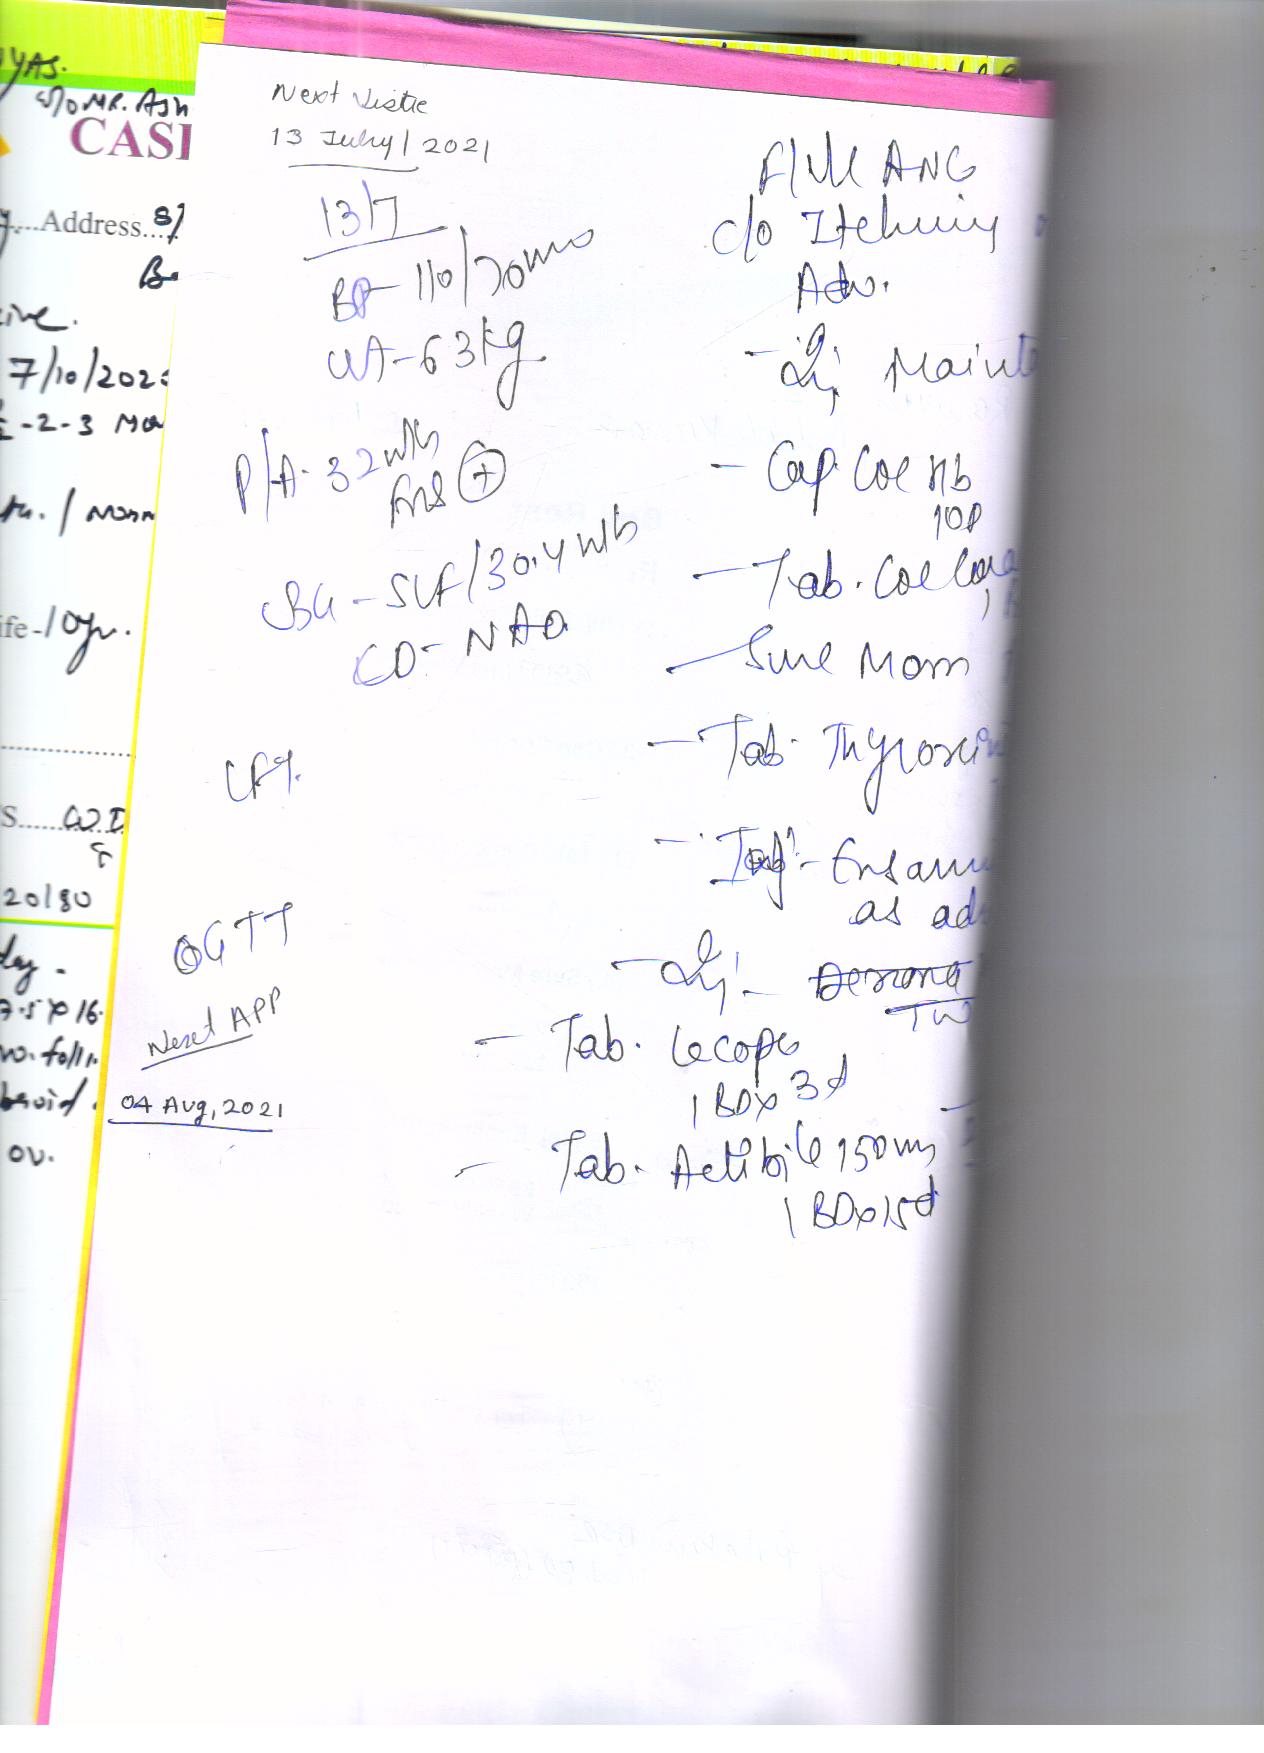 YAS.
W/O MR. ASH
CASI
....Address...S/
7/10/202
-2-3 Mo
/ Norm
ife -10yr.
S......W.I
20/80
day.
7.5 x 16.
no. follo
ov.
Next Visite
13 July/2021
13/7
BP-110/70mm
Wt-63kg
P/A-32wks
FHS (+)
BG-SLF/30.4wks
CO-NAD.
LFT.
OGTT
Next APP
04 Aug, 2021
F/U ANC
c/o Itching
Adv.
- Inj Mainte
- Cap. Coe Nb
10P
- Tab. Coe Cora
- Sure Mom
- Tab. Thyroxin
- Inj - Ensamu
as adv
- Inj -
TW
- Tab. Lecope
1 BD x 3d
- Tab. Actibile 150mg
1 BD x 15d